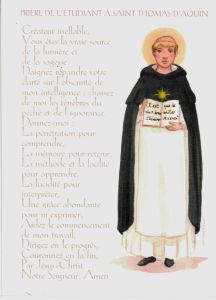 PRIERE DE L'ETUDIANT A SAINT THOMAS D'AQUIN
Créateur ineffable,
Vous êtes la vraie source
de la lumière et
de la sagesse.
Daignez répandre votre
clarté sur l'obscurité de
mon intelligence ; chassez
de moi les ténèbres du
péché et de l'ignorance.
Donnez-moi :
La pénétration pour
comprendre,
La mémoire pour retenir,
La méthode et la facilité
pour apprendre,
La lucidité pour
interpréter,
Une grâce abondante
pour m'exprimer.
Aidez le commencement
de mon travail,
Dirigez-en le progrès,
Couronnez-en la fin,
Par Jésus-Christ
Notre Seigneur. Amen